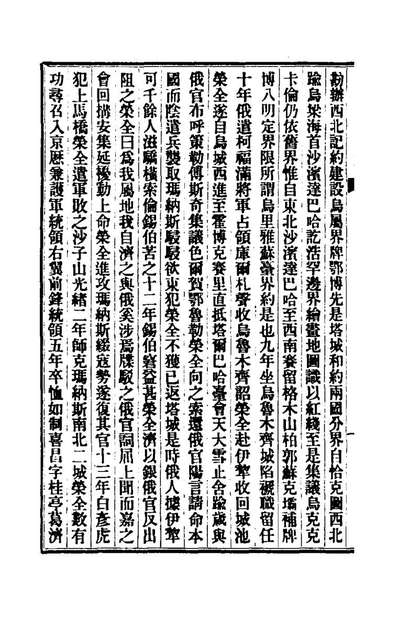 勘辦西北記約建設烏屬界牌鄂博先是塔城和約兩國分界自恰克圖西北
踰烏梁海首沙濱達巴哈訖浩罕邊界繪畫地圖識以紅綫至是集議烏克克
卡倫仍依舊界惟自東北沙濱達巴哈至西南賽留格木山柏郭蘇克壩補牌
博八明定界限所謂烏里雅蘇臺界約是也九年坐烏魯木齊城陷褫職留任
十年俄遣柯福滿將軍占領庫爾札聲收烏魯木齊詔榮全赴伊犂收回城池
榮全遂自烏城西進至霍博克賽里直抵塔爾巴哈臺會天大雪止舍踰歲與
俄官布呼策勒傅斯奇集議色爾賀鄂魯勒榮全向之索還俄官陽言請命本
國而陰遣兵襲取瑪納斯駸駸欲東犯榮全不獲已返塔城是時俄人據伊犂
可千餘人滋驕橫索倫錫伯苦之十二年錫伯窘益甚榮全濟以銀俄官反出
阻之榮全曰爲我屬地我自濟之與俄奚涉爲牒駮之俄官詞屈上聞而嘉之
會回搆安集延擾動上命榮全進攻瑪納斯綏寇勢遂復其官十三年白彥虎
犯上馬橋榮全遣軍敗之沙子山光緒二年師克瑪納斯南北二城榮全數有
功尋召入京歷兼護軍統領右翼前鋒統領五年卒恤如制喜昌字桂亭葛濟